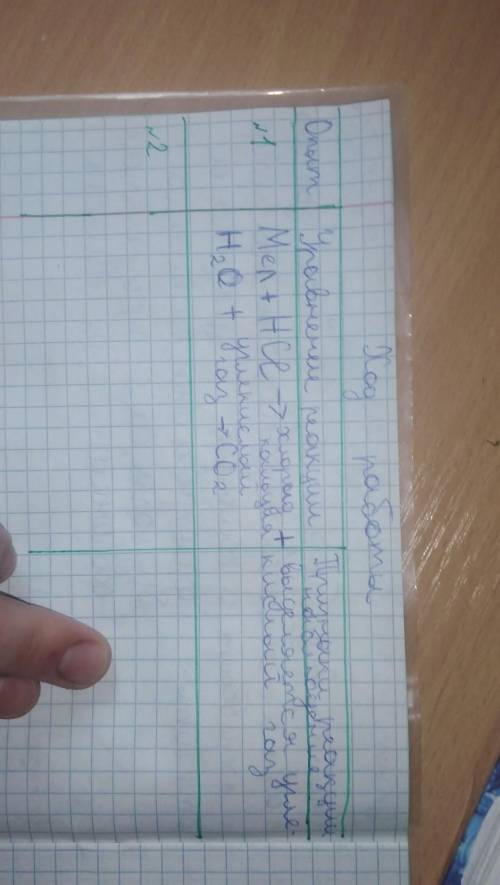 Ход работы
Опыт Уравнение реакции Признаки реакции
наблюдение
№1 Мел + HCl → хлорид кальция + H₂O + углекислый газ → CO₂
выделяется углекислый газ
№2